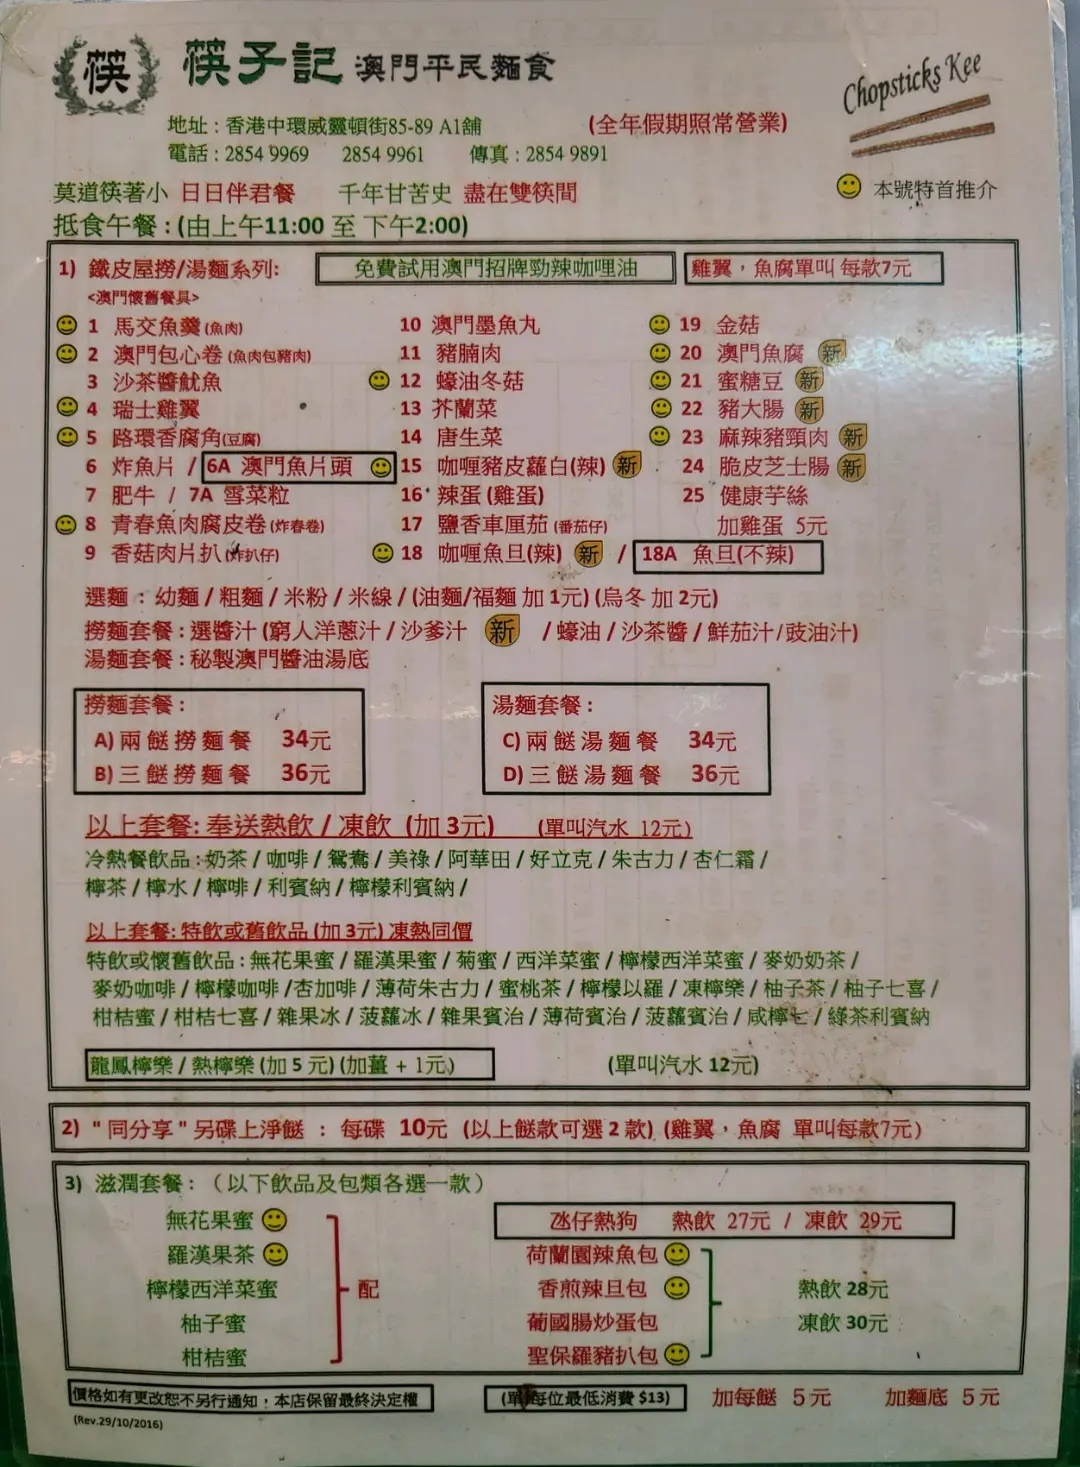 筷 筷子記 澳門平民麵食
Chopsticks Kee
地址 : 香港中環威靈頓街85-89 A1舖 (全年假期照常營業)
電話 : 2854 9969 2854 9961 傳真 : 2854 9891
莫道筷著小 日日伴君餐 千年甘苦史 盡在雙筷間 本號特首推介
抵食午餐 : (由上午11:00 至 下午2:00)
1) 鐵皮屋撈/湯麵系列: 免費試用澳門招牌勁辣咖哩油 雞翼，魚腐單叫 每款7元
<澳門懷舊餐具>
1 馬交魚羹 (魚肉) 10 澳門墨魚丸 19 金菇
2 澳門包心卷 (魚肉包豬肉) 11 豬腩肉 20 澳門魚腐 新
3 沙茶醬魷魚 12 蠔油冬菇 21 蜜糖豆 新
4 瑞士雞翼 13 芥蘭菜 22 豬大腸 新
5 路環香腐角(豆腐) 14 唐生菜 23 麻辣豬頸肉 新
6 炸魚片 / 6A 澳門魚片頭 15 咖喱豬皮蘿白(辣) 新 24 脆皮芝士腸 新
7 肥牛 / 7A 雪菜粒 16 辣蛋 (雞蛋) 25 健康芋絲
8 青春魚肉腐皮卷 (炸春卷) 17 鹽香車厘茄 (番茄仔) 加雞蛋 5元
9 香菇肉片扒 (炸扒仔) 18 咖喱魚旦(辣) 新 / 18A 魚旦(不辣)
選麵 : 幼麵 / 粗麵 / 米粉 / 米線 / (油麵/福麵 加 1元) (烏冬 加 2元)
撈麵套餐 : 選醬汁 (窮人洋蔥汁 / 沙爹汁 新 / 蠔油 / 沙茶醬 / 鮮茄汁 / 豉油汁)
湯麵套餐 : 秘製澳門醬油湯底
撈麵套餐 : 湯麵套餐 :
A) 兩餸撈麵餐 34元 C) 兩餸湯麵餐 34元
B) 三餸撈麵餐 36元 D) 三餸湯麵餐 36元
以上套餐: 奉送熱飲 / 凍飲 (加 3元) (單叫汽水 12元)
冷熱餐飲品 : 奶茶 / 咖啡 / 鴛鴦 / 美祿 / 阿華田 / 好立克 / 朱古力 / 杏仁霜 /
檸茶 / 檸水 / 檸啡 / 利賓納 / 檸檬利賓納 /
以上套餐: 特飲或舊飲品 (加 3元) 凍熱同價
特飲或懷舊飲品 : 無花果蜜 / 羅漢果蜜 / 菊蜜 / 西洋菜蜜 / 檸檬西洋菜蜜 / 麥奶奶茶 /
麥奶咖啡 / 檸檬咖啡 /杏加啡 / 薄荷朱古力 / 蜜桃茶 / 檸檬以羅 / 凍檸樂 / 柚子茶 / 柚子七喜 /
柑桔蜜 / 柑桔七喜 / 雜果冰 / 菠蘿冰 / 雜果賓治 / 薄荷賓治 / 菠蘿賓治 / 咸檸七 / 綠茶利賓納
龍鳳檸樂 / 熱檸樂 (加 5 元) (加薑 + 1元) (單叫汽水 12元)
2) " 同分享 " 另碟上淨餸 : 每碟 10元 (以上餸款可選 2 款) (雞翼，魚腐 單叫每款7元)
3) 滋潤套餐 : (以下飲品及包類各選一款)
無花果蜜 氹仔熱狗 熱飲 27元 / 凍飲 29元
羅漢果茶 荷蘭園辣魚包
檸檬西洋菜蜜 配 香煎辣旦包 熱飲 28元
柚子蜜 葡國腸炒蛋包 凍飲 30元
柑桔蜜 聖保羅豬扒包
價格如有更改恕不另行通知，本店保留最終決定權 每位最低消費 $13) 加每餸 5 元 加麵底 5 元
(Rev.29/10/2016)